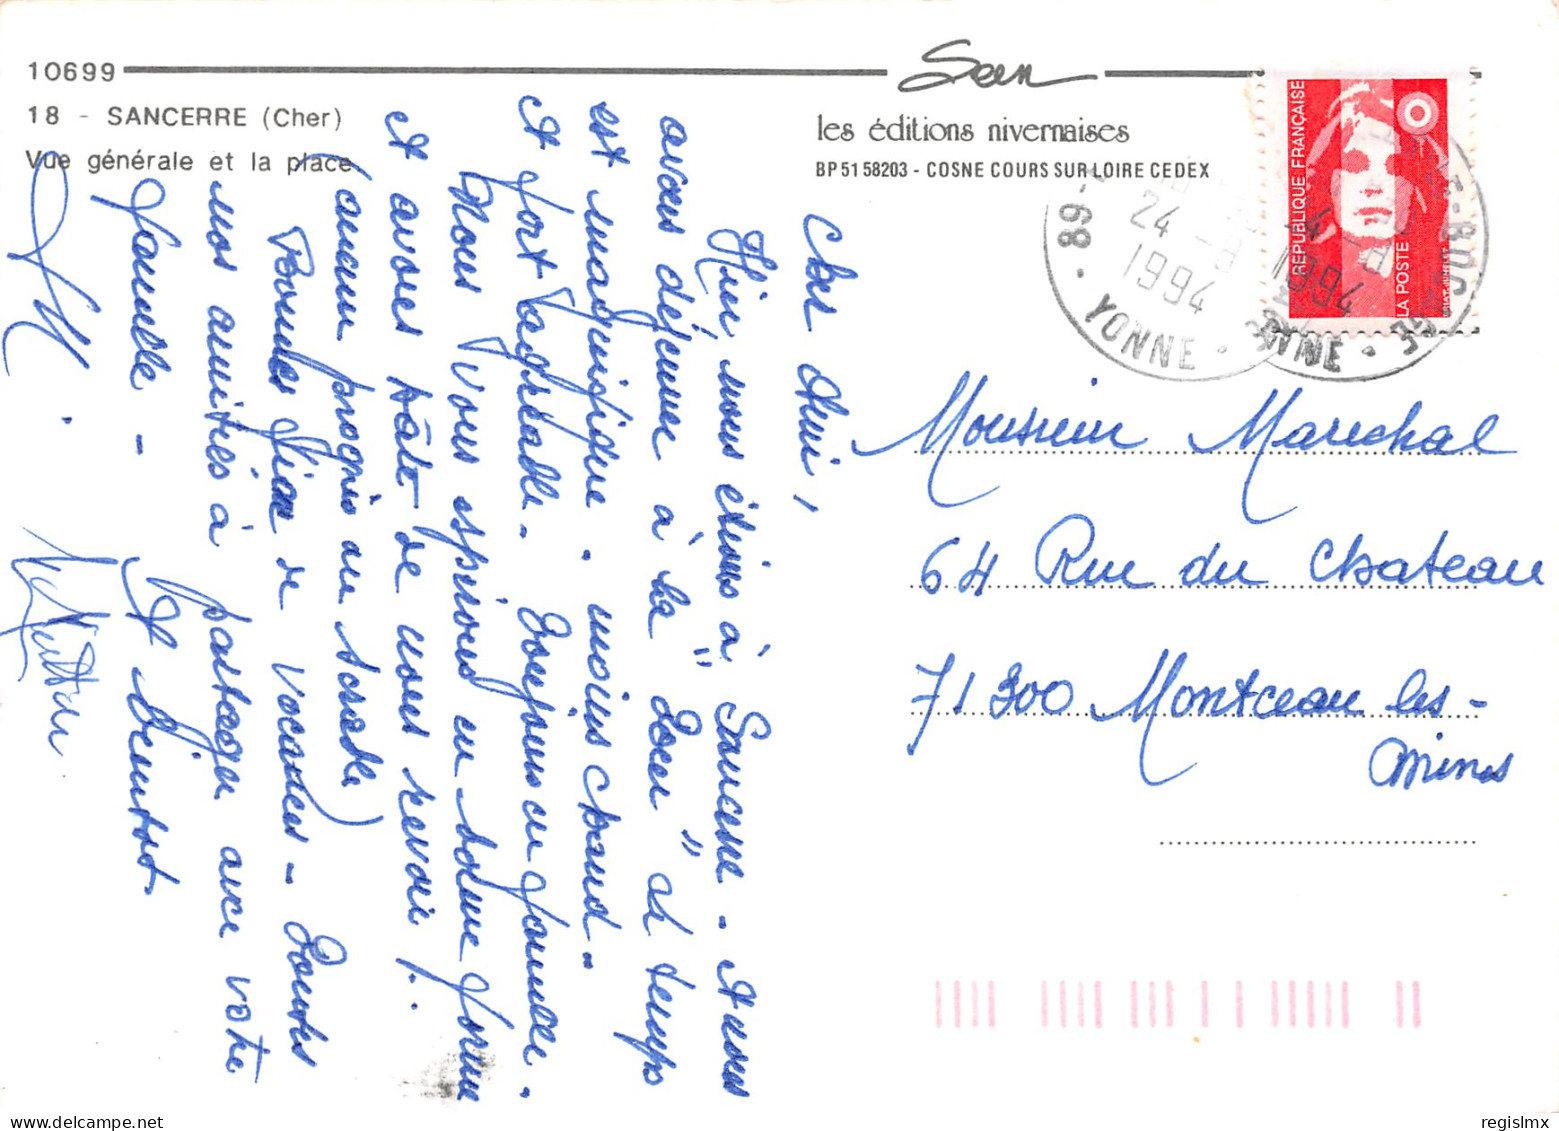 10699
Seen
18 - SANCERRE (Cher)
Vue générale et la place
les éditions nivernaises
BP 51 58203 - COSNE COURS SUR LOIRE CEDEX
REPUBLIQUE FRANÇAISE
LA POSTE
89 - YONNE
24 - 8
1994
Cher Ami,
Hier, nous étions à Sancerre - Nous
avons déjeuné à la "Tour" et temps
est magnifique - moins chaud -
et fort agréable. Toujours en famille -
Nous vous espérons en bonne forme
et avons hâte de vous revoir !..
(aucun progrès au scrabble)
Bonnes fins de vacances - Toutes
nos amitiés à partager avec votre
famille -
A bientôt
Monsieur Marechal
64 Rue du Chateau
71300 Montceau les-
Mines
regislmx